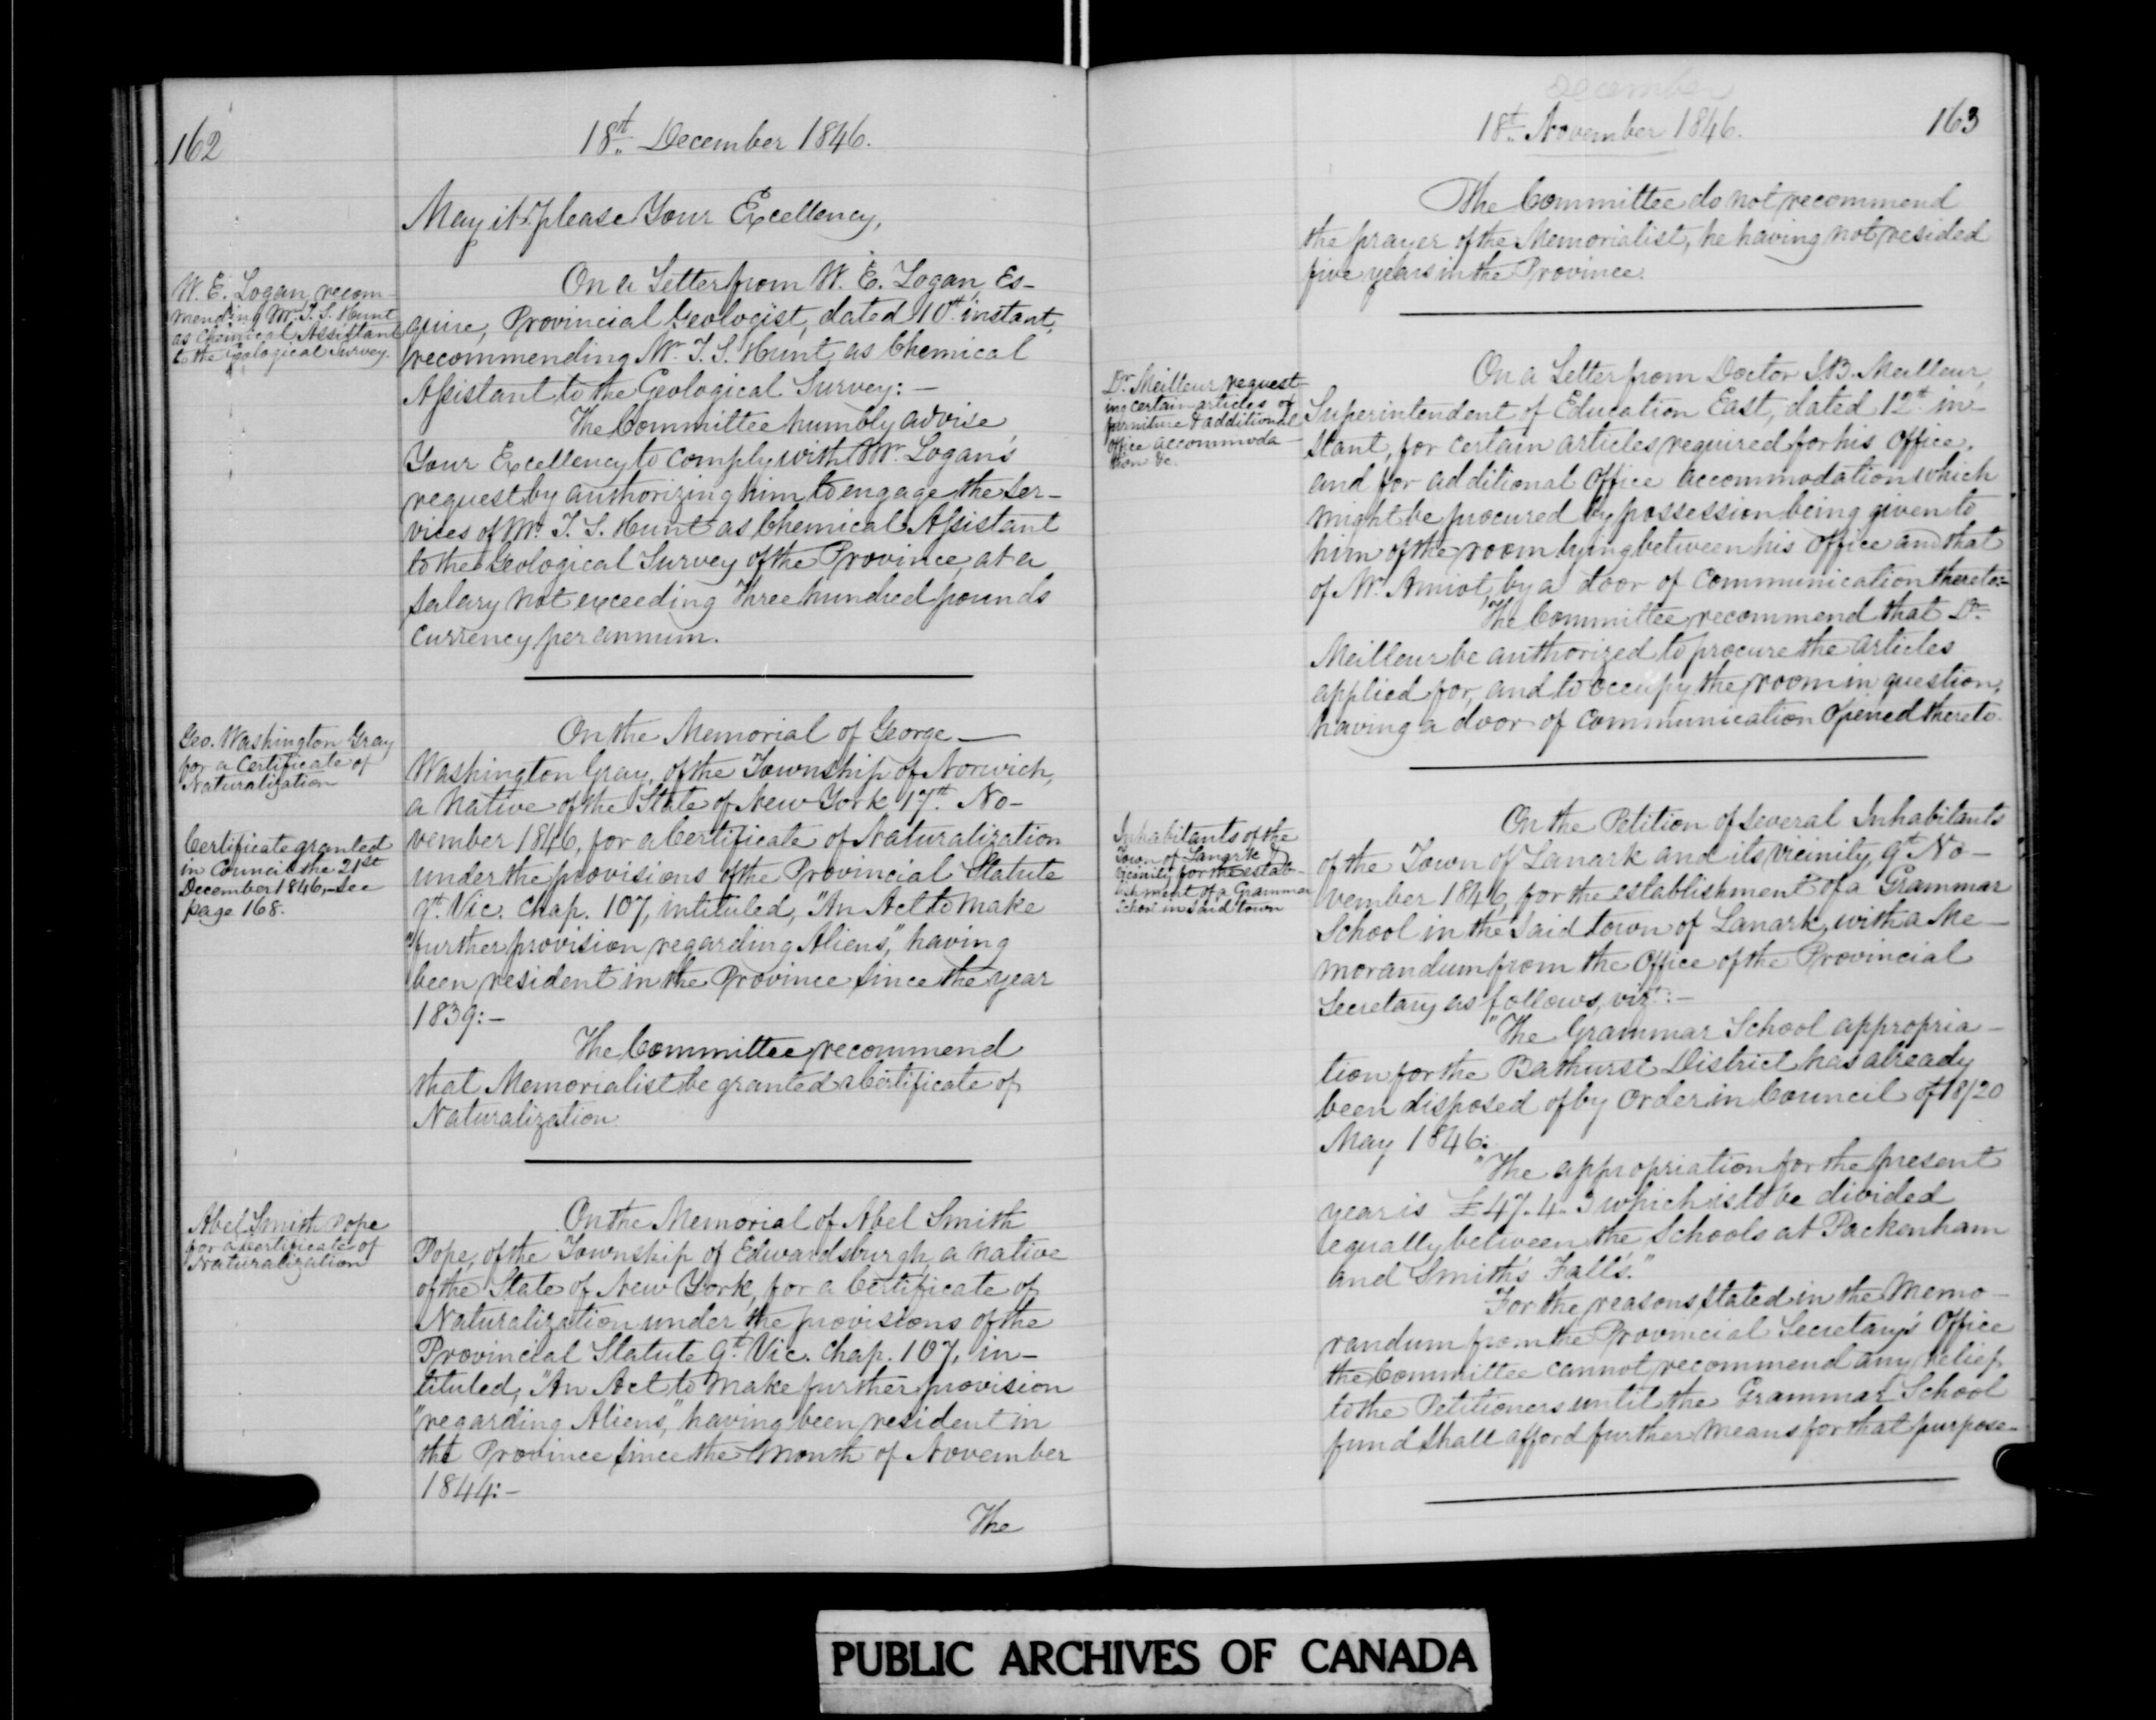 162
18th. December 1846.
May it please Your Excellency,
W. E. Logan, recom-
mending Mr. T. S. Hunt
as Chemical Assistant
to the Geological Survey.
On a Letter from W. E. Logan, Es-
quire, Provincial Geologist, dated 10th instant,
recommending Mr. T. S. Hunt as Chemical
Assistant to the Geological Survey:-
The Committee humbly advise
Your Excellency to comply with Mr. Logan's
request by authorizing him to engage the ser-
vices of Mr. T. S. Hunt as Chemical Assistant
to the Geological Survey of the Province, at a
salary not exceeding Three hundred pounds
currency per annum.
Geo. Washington Gray
for a Certificate of
Naturalization
Certificate granted
in Council the 21st
December 1846,-see
page 168.
On the Memorial of George
Washington Gray, of the Township of Norwich,
a native of the State of New York 17th. No-
vember 1846, for a Certificate of Naturalization
under the provisions of the Provincial Statute
9th. Vic. Chap. 107, intituled, "An Act to make
"further provision regarding Aliens," having
been resident in the Province since the year
1839:-
The Committee recommend
that Memorialist be granted a Certificate of
Naturalization.
Abel Smith Pope
for a Certificate of
Naturalization
On the Memorial of Abel Smith
Pope, of the Township of Edwardsburgh, a native
of the State of New York, for a Certificate of
Naturalization under the provisions of the
Provincial Statute 9th. Vic. Chap. 107, in-
tituled, "An Act to make further provision
"regarding Aliens," having been resident in
the Province since the month of November
1844:-
The
December
18th. November 1846.
163
The Committee do not recommend
the prayer of the Memorialist, he having not resided
five years in the Province.
Dr. Meilleur request-
ing certain articles of
furniture & additional
office accommoda-
tion &c.
On a Letter from Doctor J.B. Meilleur,
Superintendent of Education East, dated 12th in-
stant, for certain articles required for his Office,
and for additional Office accommodation which
might be procured by possession being given to
him of the room lying between his Office and that
of Mr. Amiot, by a door of communication thereto:-
The Committee recommend that Dr.
Meilleur be authorized to procure the articles
applied for, and to occupy the room in question,
having a door of communication opened thereto.
Inhabitants of the
Town of Lanark &
vicinity for the estab-
lishment of a Grammar
School in said town
On the Petition of several Inhabitants
of the Town of Lanark and its vicinity, 9th No-
vember 1846, for the establishment of a Grammar
School in the said town of Lanark, with a Me-
morandum from the Office of the Provincial
Secretary as follows, vizt:-
"The Grammar School appropria-
tion for the Bathurst District has already
been disposed of by Order in Council of 18/20
May 1846:
"The appropriation for the present
year is £47. 4. 3 which is to be divided
equally between the Schools at Packenham
and Smith's Falls."
For the reasons stated in the Memo-
randum from the Provincial Secretary's Office
the Committee cannot recommend any relief
to the Petitioners until the Grammar School
fund shall afford further means for that purpose.
PUBLIC ARCHIVES OF CANADA